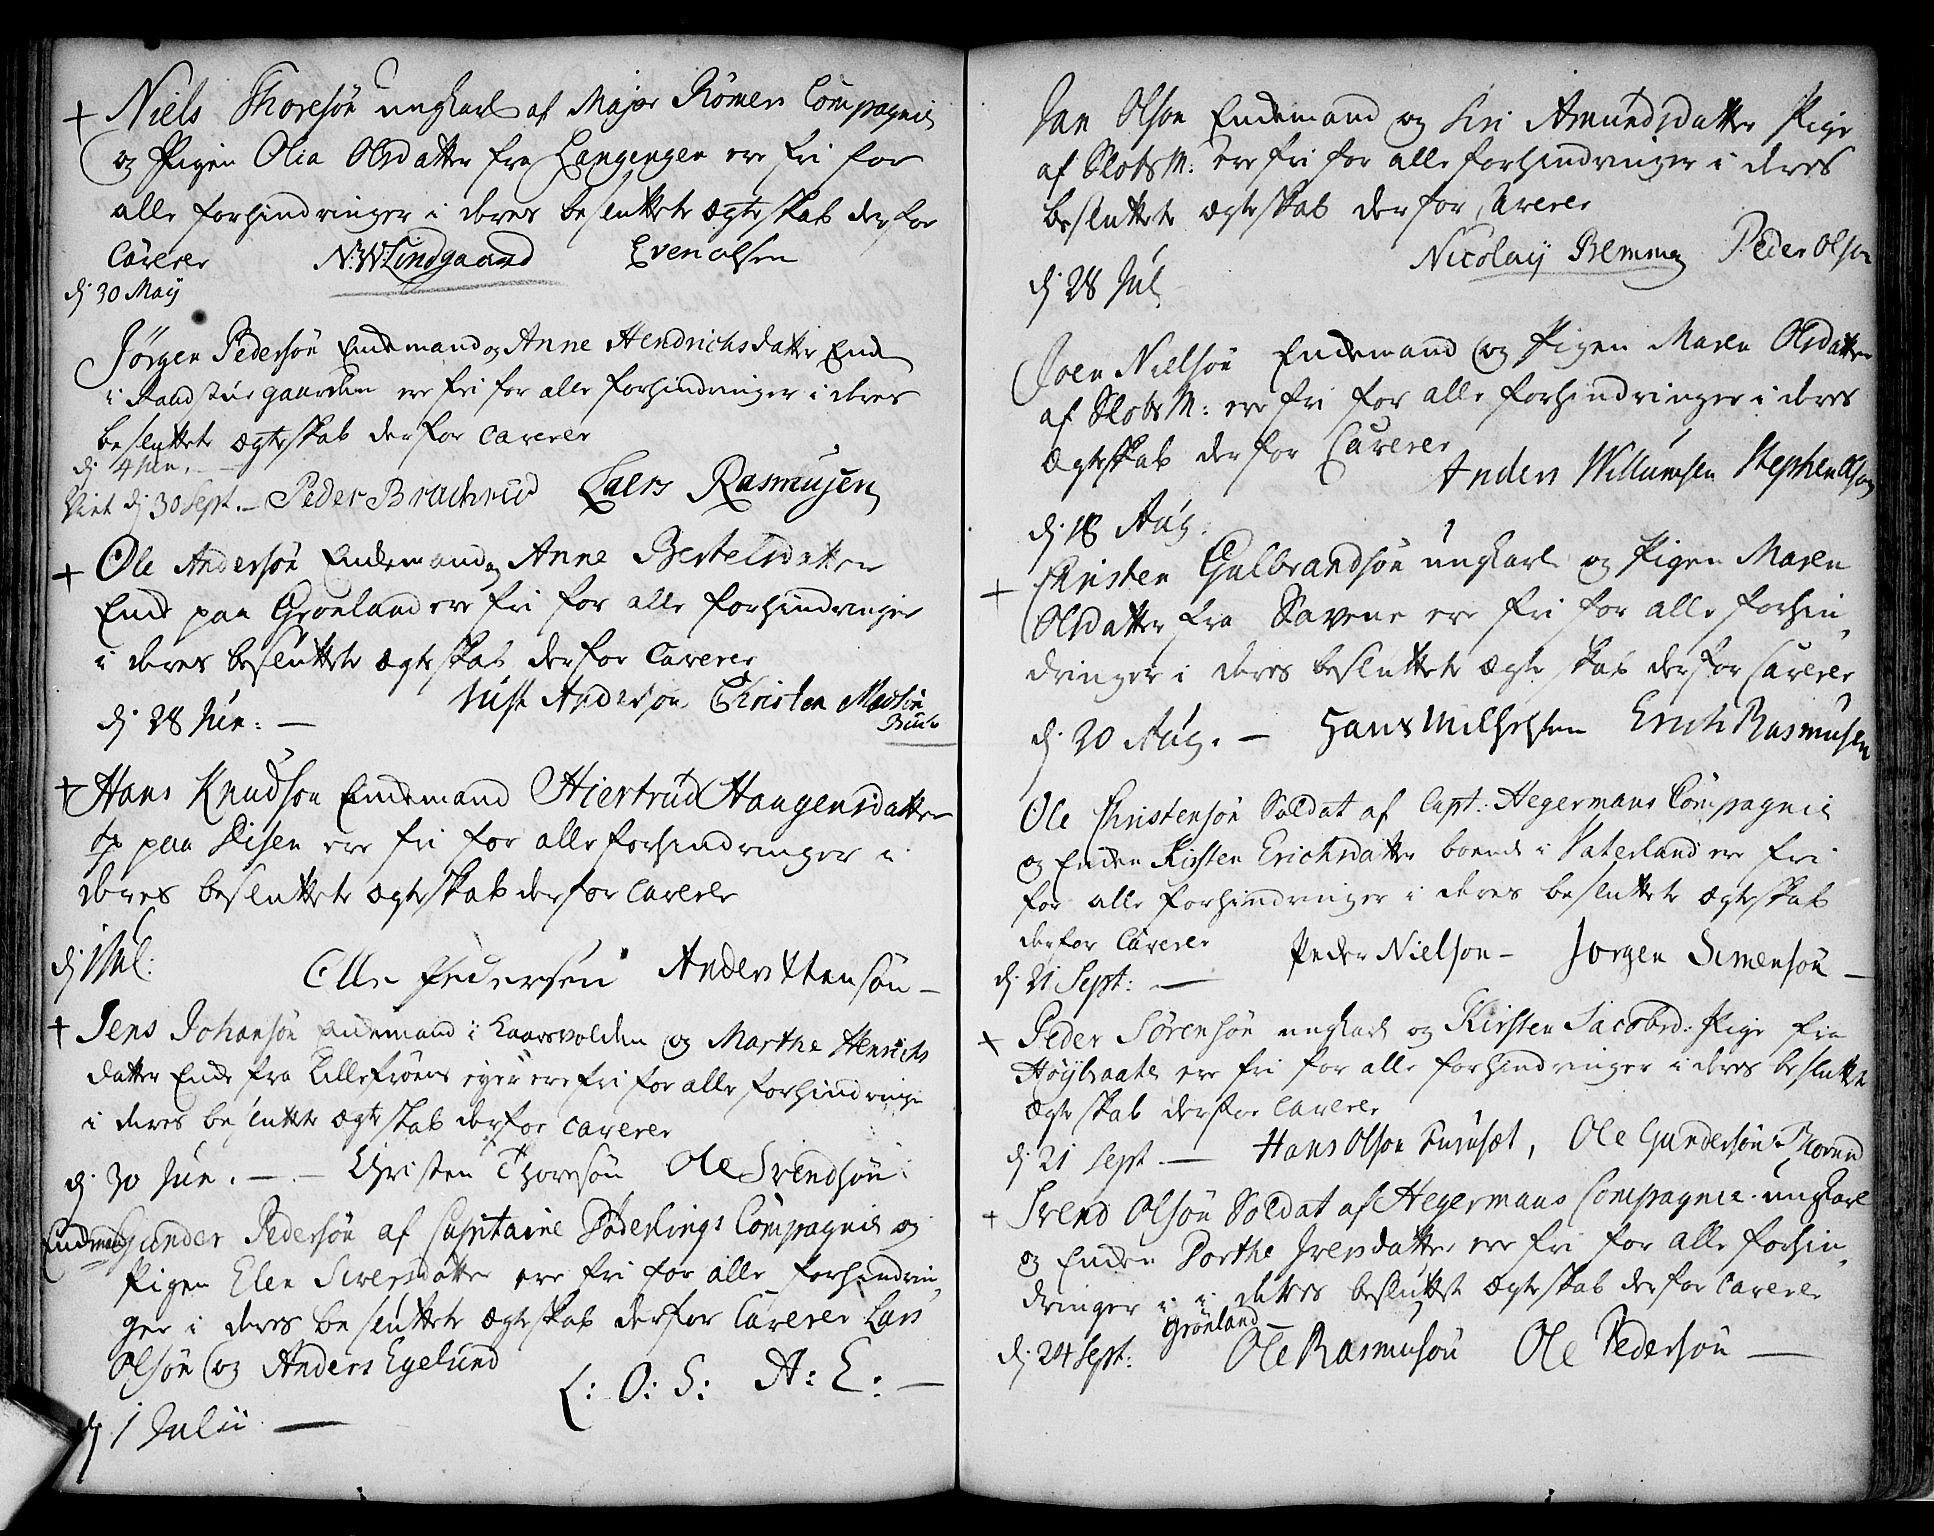 + Niels Thoresøn ungkarl af Major Rømers Compagnie
og Pigen Olia Olsdatter fra Langengen ere fri for
alle forhindringer i deres besluttete ægteskab derfor
Caverer N: W Lindgaard Even olsen
dj 30 Maij
Jørgen Pedersøn Enckemand og Anne Hendrichsdatter Enck
i Raadstue gaarden ere fri for alle forhindringer i deres
besluttete ægteskab derfor caverer
dj 4 Jun. -
Viet dj 30 Sept. - Peder Brachrud Laers Rasmusen
+ Ole Andersøn Enckemand og Anne Bertelsdatter
Encke paa Grønland ere fri for alle forhindringer
i deres besluttete ægteskab derfor Caverer
Andersøn Christen Madsøn
dj 28 Jun: -
+ Hans Knudsøn Enckemand Hiertrud Haagensdatter
paa Disen ere fri for alle forhindringer i
deres besluttete ægteskab derfor Caverer
dj 1 Jul:
Olle Pedersen Anders Stensøn -
+ Jens Johansøn Enckemand i Kaarsvolden og Marthe Henrichs
datter Encke fra Lillefrøens eyer ere fri for alle forhindringer
i deres besluttete ægteskab derfor caverer
dj 30 Jun. - - Christen Thoresøn Ole Svendsøn
Enckemand Gunder Pedersøn af Capitaine Søderlings Compagnie og
Pigen Elen Siversdatter ere fri for alle forhindrin,
ger i deres besluttete ægteskab derfor Caverer Lars
Olsøn og Anders Egelund
L: O: S: A: E: -
dj 1 Julii -
Jan Olsøn Enckemand og Siri Amundsdatter Pige
af Slots M: ere fri for alle forhindringer i deres
besluttete ægteskab derfor Caverer
Nicolaij Bemmeg Peder Olsøn
dj 28 Jul
Joen Nielsøn Enckemand og Pigen Maren Olsdatter
af Slots M: ere fri for alle forhindringer i deres
Ægteskab derfor Caverer
Anders Willumsen Stephen Olsøn
dj 18 Aug.
+ Christen Gulbrandsøn ungkarl og Pigen Maren
Olsdatter fra Savene ere fri for alle forhin,
dringer i deres besluttete Ægteskab derfor Caverer
dj 20 Aug. - Hans Michelsen Erich Rasmusen
Ole Christensøn Soldat af Capt: Hegermans Compagnie
og Encken Kirsten Erichsdatter boende i Vaterland ere fri
for alle forhindringer i deres besluttete ægteskab
derfor Caverer Peder Nielsøn - Jørgen Simensøn -
dj 21 Sept: -
+ Peder Sørensøn ungkarl og Kirsten Jacobsd: Pige fra
Høybraaten ere fri for alle forhindringer i deres besluttete
ægteskab derfor Caverer
dj 21 Sept - Hans Olsøn Furusæt, Ole Gundersøn Thorud
+ Svend Olsøn Soldat af Hegermans Compagnie ungkarl
og Encken Dorthe Iversdatter ere fri for alle forhin,
dringer i deres besluttet ægteskab derfor Caverer
Grønland
dj 24 Sept: Ole Rasmusøn Ole Pedersøn -